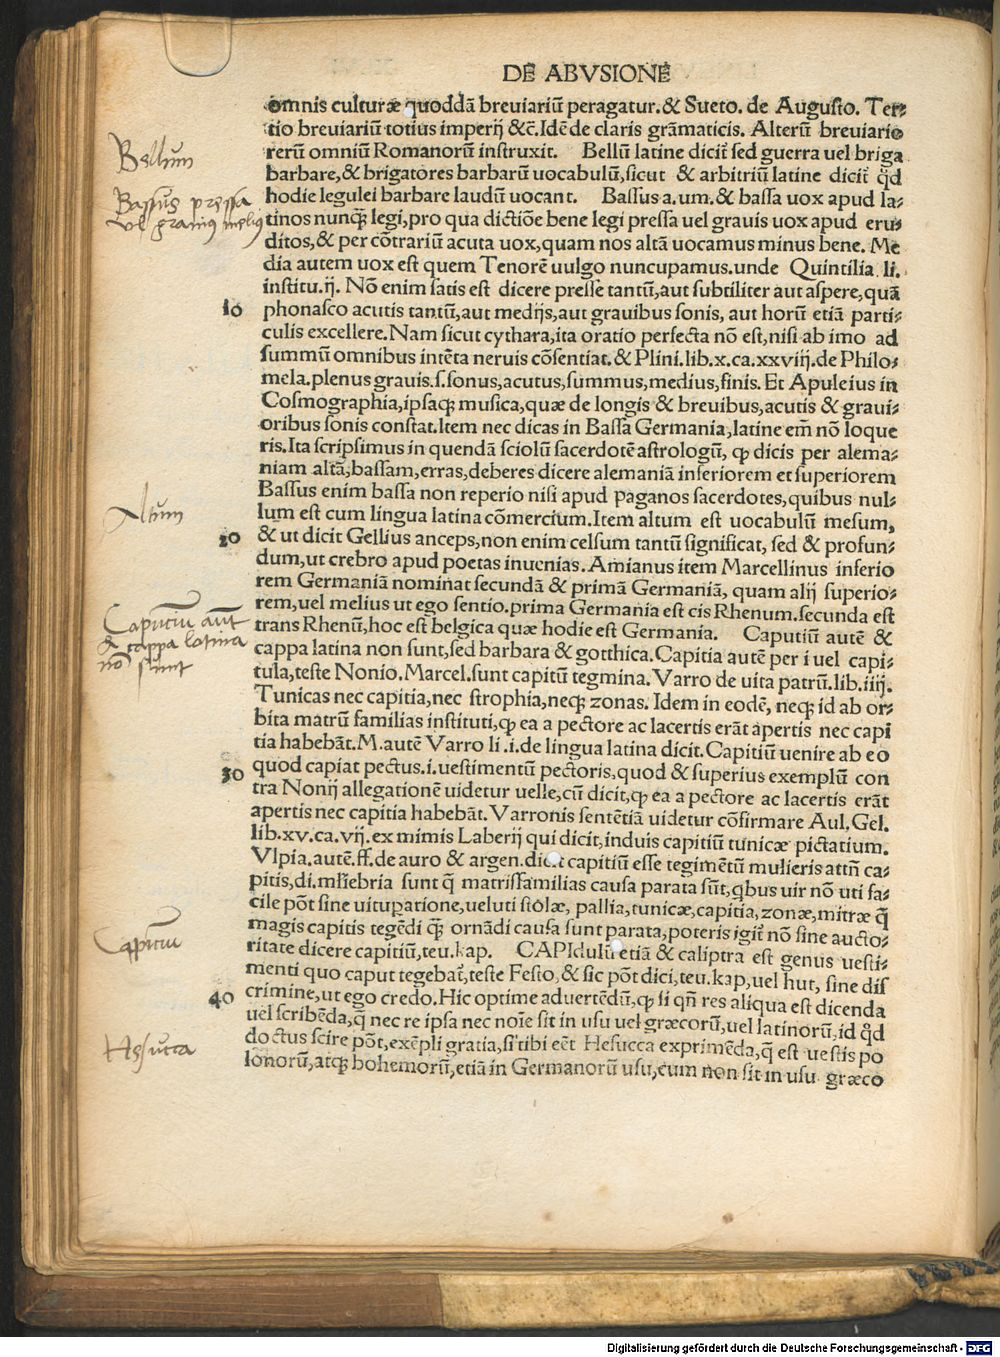 DE ABVSIONE
omnis culturæ quoddā breuiariū peragatur.& Sueto. de Augusto. Ter⸗
tio breuiariū totius imperij &c̄.Idē de claris grāmaticis. Alterū breuiario
rerū omniū Romanorū instruxit. Bellū latine dicit̄ sed guerra uel briga
barbare,& brigatores barbarū uocabulū,sicut & arbitriū latine dicit̄ q̄d
hodie legulei barbare laudū uocant. Bassus a.um.& bassa uox apud la⸗
tinos nunq̄ legi,pro qua dictiōe bene legi pressa uel grauis uox apud eru⸗
ditos,& per cōtrariū acuta uox,quam nos altā uocamus minus bene. Me
dia autem uox est quem Tenorē uulgo nuncupamus.unde Quintilia. li.
institu.ij. Nō enim satis est dicere presse tantū,aut subtiliter aut aspere,quā
10 phonasco acutis tantū,aut medijs,aut grauibus sonis, aut horū etiā parti⸗
culis excellere.Nam sicut cythara,ita oratio perfecta nō est,nisi ab imo ad
summū omnibus intēta neruis cōsentiat.& Plini.lib.x.ca.xxviij.de Philo⸗
mela.plenus grauis.s.sonus,acutus,summus,medius,finis. Et Apuleius in
Cosmographia,ipsaq; musica,quæ de longis & breuibus,acutis & graui⸗
oribus sonis constat.Item nec dicas in Bassa Germania,latine em̄ nō loque
ris.Ita scripsimus in quendā sciolū sacerdotē astrologū, ꝙ dicis per alema⸗
niam altā,bassam,erras,deberes dicere alemaniā inferiorem et superiorem
Bassus enim bassa non reperio nisi apud paganos sacerdotes,quibus nul⸗
lum est cum lingua latina cōmercium.Item altum est uocabulū mesum,
20 & ut dicit Gellius anceps,non enim celsum tantū significat, sed & profun⸗
dum,ut crebro apud poetas inuenias. Amianus item Marcellinus inferio
rem Germaniā nominat secundā & primā Germaniā, quam alij superio⸗
rem,uel melius ut ego sentio.prima Germania est cis Rhenum.secunda est
trans Rhenū,hoc est belgica quæ hodie est Germania. Caputiū autē &
cappa latina non sunt,sed barbara & gotthica.Capitia autē per i uel capi⸗
tula,teste Nonio.Marcel.sunt capitū tegmina. Varro de uita patrū.lib.iiij.
Tunicas nec capitia,nec strophia,neq; zonas. Idem in eodē, neq; id ab or⸗
bita matrū familias instituti,ꝙ ea a pectore ac lacertis erāt apertis nec capi
tia habebāt.M.autē Varro li .i.de lingua latina dicit.Capitiū uenire ab eo
30 quod capiat pectus.i.uestimentū pectoris,quod & superius exemplū con
tra Nonij allegationē uidetur uelle,cū dicit,ꝙ ea a pectore ac lacertis erāt
apertis nec capitia habebāt. Varronis sentētiā uidetur cōfirmare Aul.Gel.
lib.xv.ca.vij.ex mimis Laberij qui dicit,induis capitiū tunicæ pictatium.
Vlpia.autē.ff.de auro & argen.dicit capitiū esse tegimētū mulieris attn̄ ca⸗
pitis,di.mliebria sunt q̄ matrisfamilias causa parata sūt,q̄bus uir nō uti fa⸗
cile pōt sine uituꝑatione,ueluti stolæ, pallia,tunicæ,capitia,zonæ,mitræ q̄
magis capitis tegēdi q̄ ornādi causa sunt parata,poteris igit̄ nō sine aucto⸗
ritate dicere capitiū,teu.kap. CAPIdulū etiā & caliptra est genus uesti⸗
menti quo caput tegebat̄,teste Festo,& sic pōt dici,teu.kap,uel hut, sine dis
40 crimine,ut ego credo.Hic optime aduertēdū,ꝙ si qn̄ res aliqua est dicenda
uel scribēda,q̄ nec re ipsa nec noīe sit in usu uel græcorū,uel latinorū,id q̄d
doctus scire pōt,exēpli gratia,si tibi eēt Hesucca exprimēda,q̄ est uestis po
lonorū,atq; bohemorū,etiā in Germanorū usu,cum non sit in usu græco
Bellum
Bassus pressa
vel grauius melius
Altum
Caputiū aut
& cappa latina
nō sunt
Capitiu
Hesucca
Digitalisierung gefördert durch die Deutsche Forschungsgemeinschaft - DFG